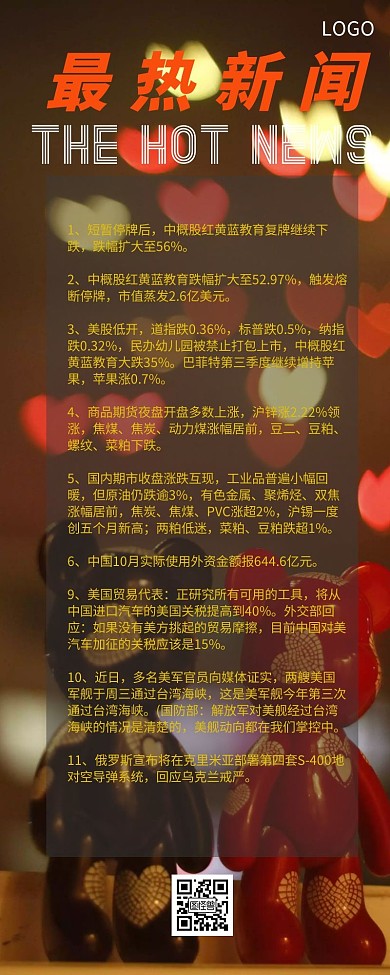 LOGO
最热新闻
THE HOT NEWS
1、短暂停牌后，中概股红黄蓝教育复牌继续下
跌，跌幅扩大至56%。
2、中概股红黄蓝教育跌幅扩大至52.97%，触发熔
断停牌，市值蒸发2.6亿美元。
3、美股低开，道指跌0.36%，标普跌0.5%，纳指
跌0.32%，民办幼儿园被禁止打包上市，中概股红
黄蓝教育大跌35%。巴菲特第三季度继续增持苹
果，苹果涨0.7%。
4、商品期货夜盘开盘多数上涨，沪锌涨2.22%领
涨，焦煤、焦炭、动力煤涨幅居前，豆二、豆粕、
螺纹、菜粕下跌。
5、国内期市收盘涨跌互现，工业品普遍小幅回
暖，但原油仍跌逾3%，有色金属、聚烯烃、双焦
涨幅居前，焦炭、焦煤、PVC涨超2%，沪锡一度
创五个月新高；两粕低迷，菜粕、豆粕跌超1%。
6、中国10月实际使用外资金额报644.6亿元。
9、美国贸易代表：正研究所有可用的工具，将从
中国进口汽车的美国关税提高到40%。外交部回
应：如果没有美方挑起的贸易摩擦，目前中国对美
汽车加征的关税应该是15%。
10、近日，多名美军官员向媒体证实，两艘美国
军舰于周三通过台湾海峡，这是美军舰今年第三次
通过台湾海峡。(国防部：解放军对美舰经过台湾
海峡的情况是清楚的，美舰动向都在我们掌控中。
11、俄罗斯宣布将在克里米亚部署第四套S-400地
对空导弹系统，回应乌克兰戒严。
图怪兽